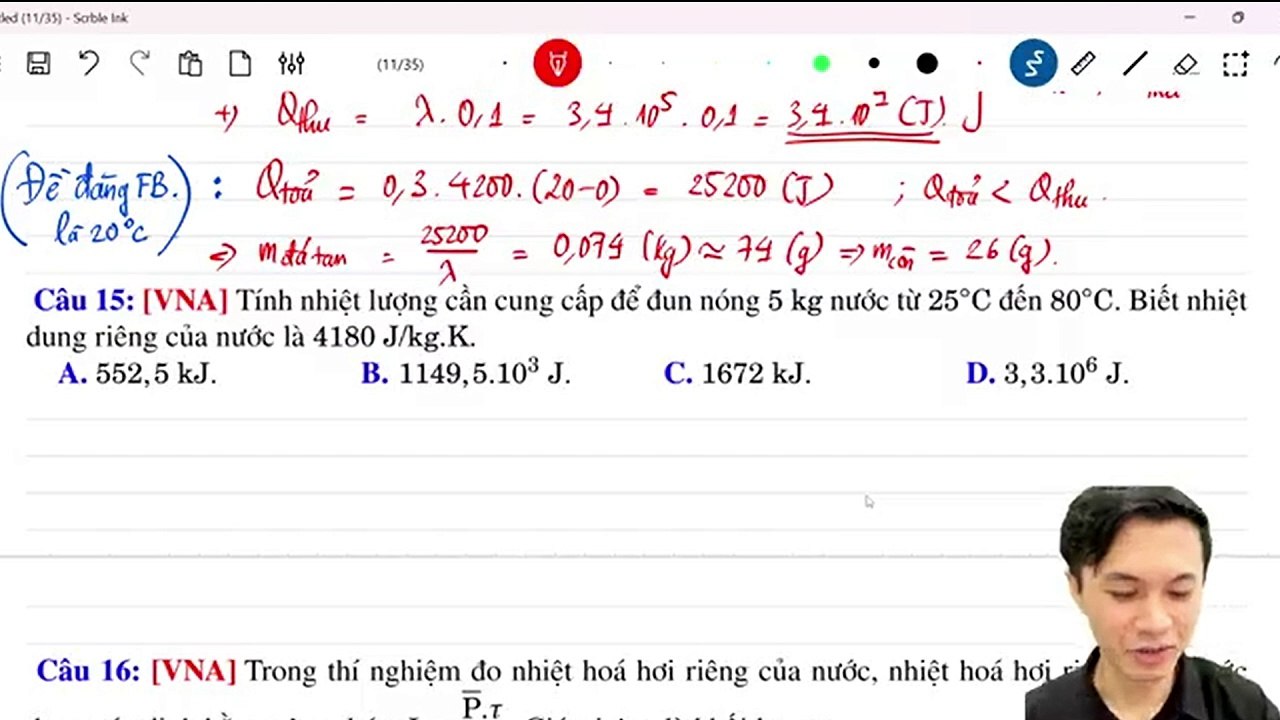 led (11/35) - Scrble Ink
(11/35)
+) Qthu = λ . 0,1 = 3,4 . 10⁵ . 0,1 = 3,4 . 10⁷ (J). J
(Đề đăng FB. là 20°C) : Qtoả = 0,3 . 4200 . (20-0) = 25200 (J) ; Qtoả < Qthu .
⇒ m đá tan = 25200/λ = 0,074 (kg) ≈ 74 (g) ⇒ mcòn = 26 (g).
Câu 15: [VNA] Tính nhiệt lượng cần cung cấp để đun nóng 5 kg nước từ 25°C đến 80°C. Biết nhiệt
dung riêng của nước là 4180 J/kg.K.
A. 552,5 kJ. B. 1149,5.10³ J. C. 1672 kJ. D. 3,3.10⁶ J.
Câu 16: [VNA] Trong thí nghiệm đo nhiệt hoá hơi riêng của nước, nhiệt hoá hơi
P̅.τ